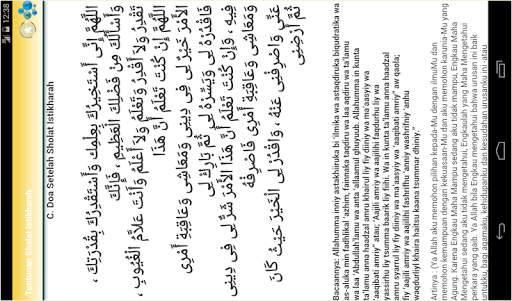 12:38
Tuntunan Shalat Istikharah
C. Doa Setelah Sholat Istikharah
اللَّهُمَّ إِنِّى أَسْتَخِيرُكَ بِعِلْمِكَ وَأَسْتَقْدِرُكَ بِقُدْرَتِكَ ،
وَأَسْأَلُكَ مِنْ فَضْلِكَ الْعَظِيمِ ، فَإِنَّكَ
تَقْدِرُ وَلاَ أَقْدِرُ وَتَعْلَمُ وَلاَ أَعْلَمُ وَأَنْتَ عَلاَّمُ الْغُيُوبِ
اللَّهُمَّ إِنْ كُنْتَ تَعْلَمُ أَنَّ هَذَا
الأَمْرَ خَيْرٌ لِى فِى دِينِى وَمَعَاشِى وَعَاقِبَةِ أَمْرِى
فَاقْدُرْهُ لِى وَيَسِّرْهُ لِى ثُمَّ بَارِكْ لِى
فِيهِ ، وَإِنْ كُنْتَ تَعْلَمُ أَنَّ هَذَا الأَمْرَ شَرٌّ لِى فِى دِينِى
وَمَعَاشِى وَعَاقِبَةِ أَمْرِى فَاصْرِفْهُ
عَنِّى وَاصْرِفْنِى عَنْهُ ، وَاقْدُرْ لِى الْخَيْرَ حَيْثُ كَانَ
ثُمَّ أَرْضِنِى
Bacaannya: Allahumma inniy astakhiiruka bi 'ilmika wa astaqdiruka biqudratika wa
as-aluka min fadhlikal 'azhim, fainnaka taqdiru wa laa aqdiru wa ta'lamu
wa laa 'Abdullah'lamu wa anta 'allaamul ghuyuub. Allahumma in kunta
ta'lamu anna haadzal amru khairul liy fiy diiniy wa ma'aasyiy wa
'aaqibati amriy" atau; "Aajili amriy wa aajilihi faqdurhu liy wa
yassirhu liy tsumma baarik liy fiihi. Wa in kunta ta'lamu anna haadzal
amru syarrul liy fiy diiniy wa ma'aasyiy wa 'aaqibati amriy" aw qaola;
fiy 'aajili amriy wa aajilihi fashrifhu 'anniy washrifniy 'anhu
waqdurliyl khaira haitsu kaana tsummar dhiniy."
Artinya : (Ya Allah aku memohon pilihan kepada-Mu dengan ilmuMu dan
memohon kemampuan dengan kekuasaan-Mu dan aku memohon karunia-Mu yang
Agung. Karena Engkau Maha Mampu sedang aku tidak mampu, Engkau Maha
Mengetahui sedang aku tidak mengetahui, Engkaulah yang Maha Mengetahui
perkara yang gaib. Ya Allah bila Engkau mengetahui bahwa urusan ini baik
untukku, bagi agamaku, kehidupanku dan kesudahan urusanku ini -atau